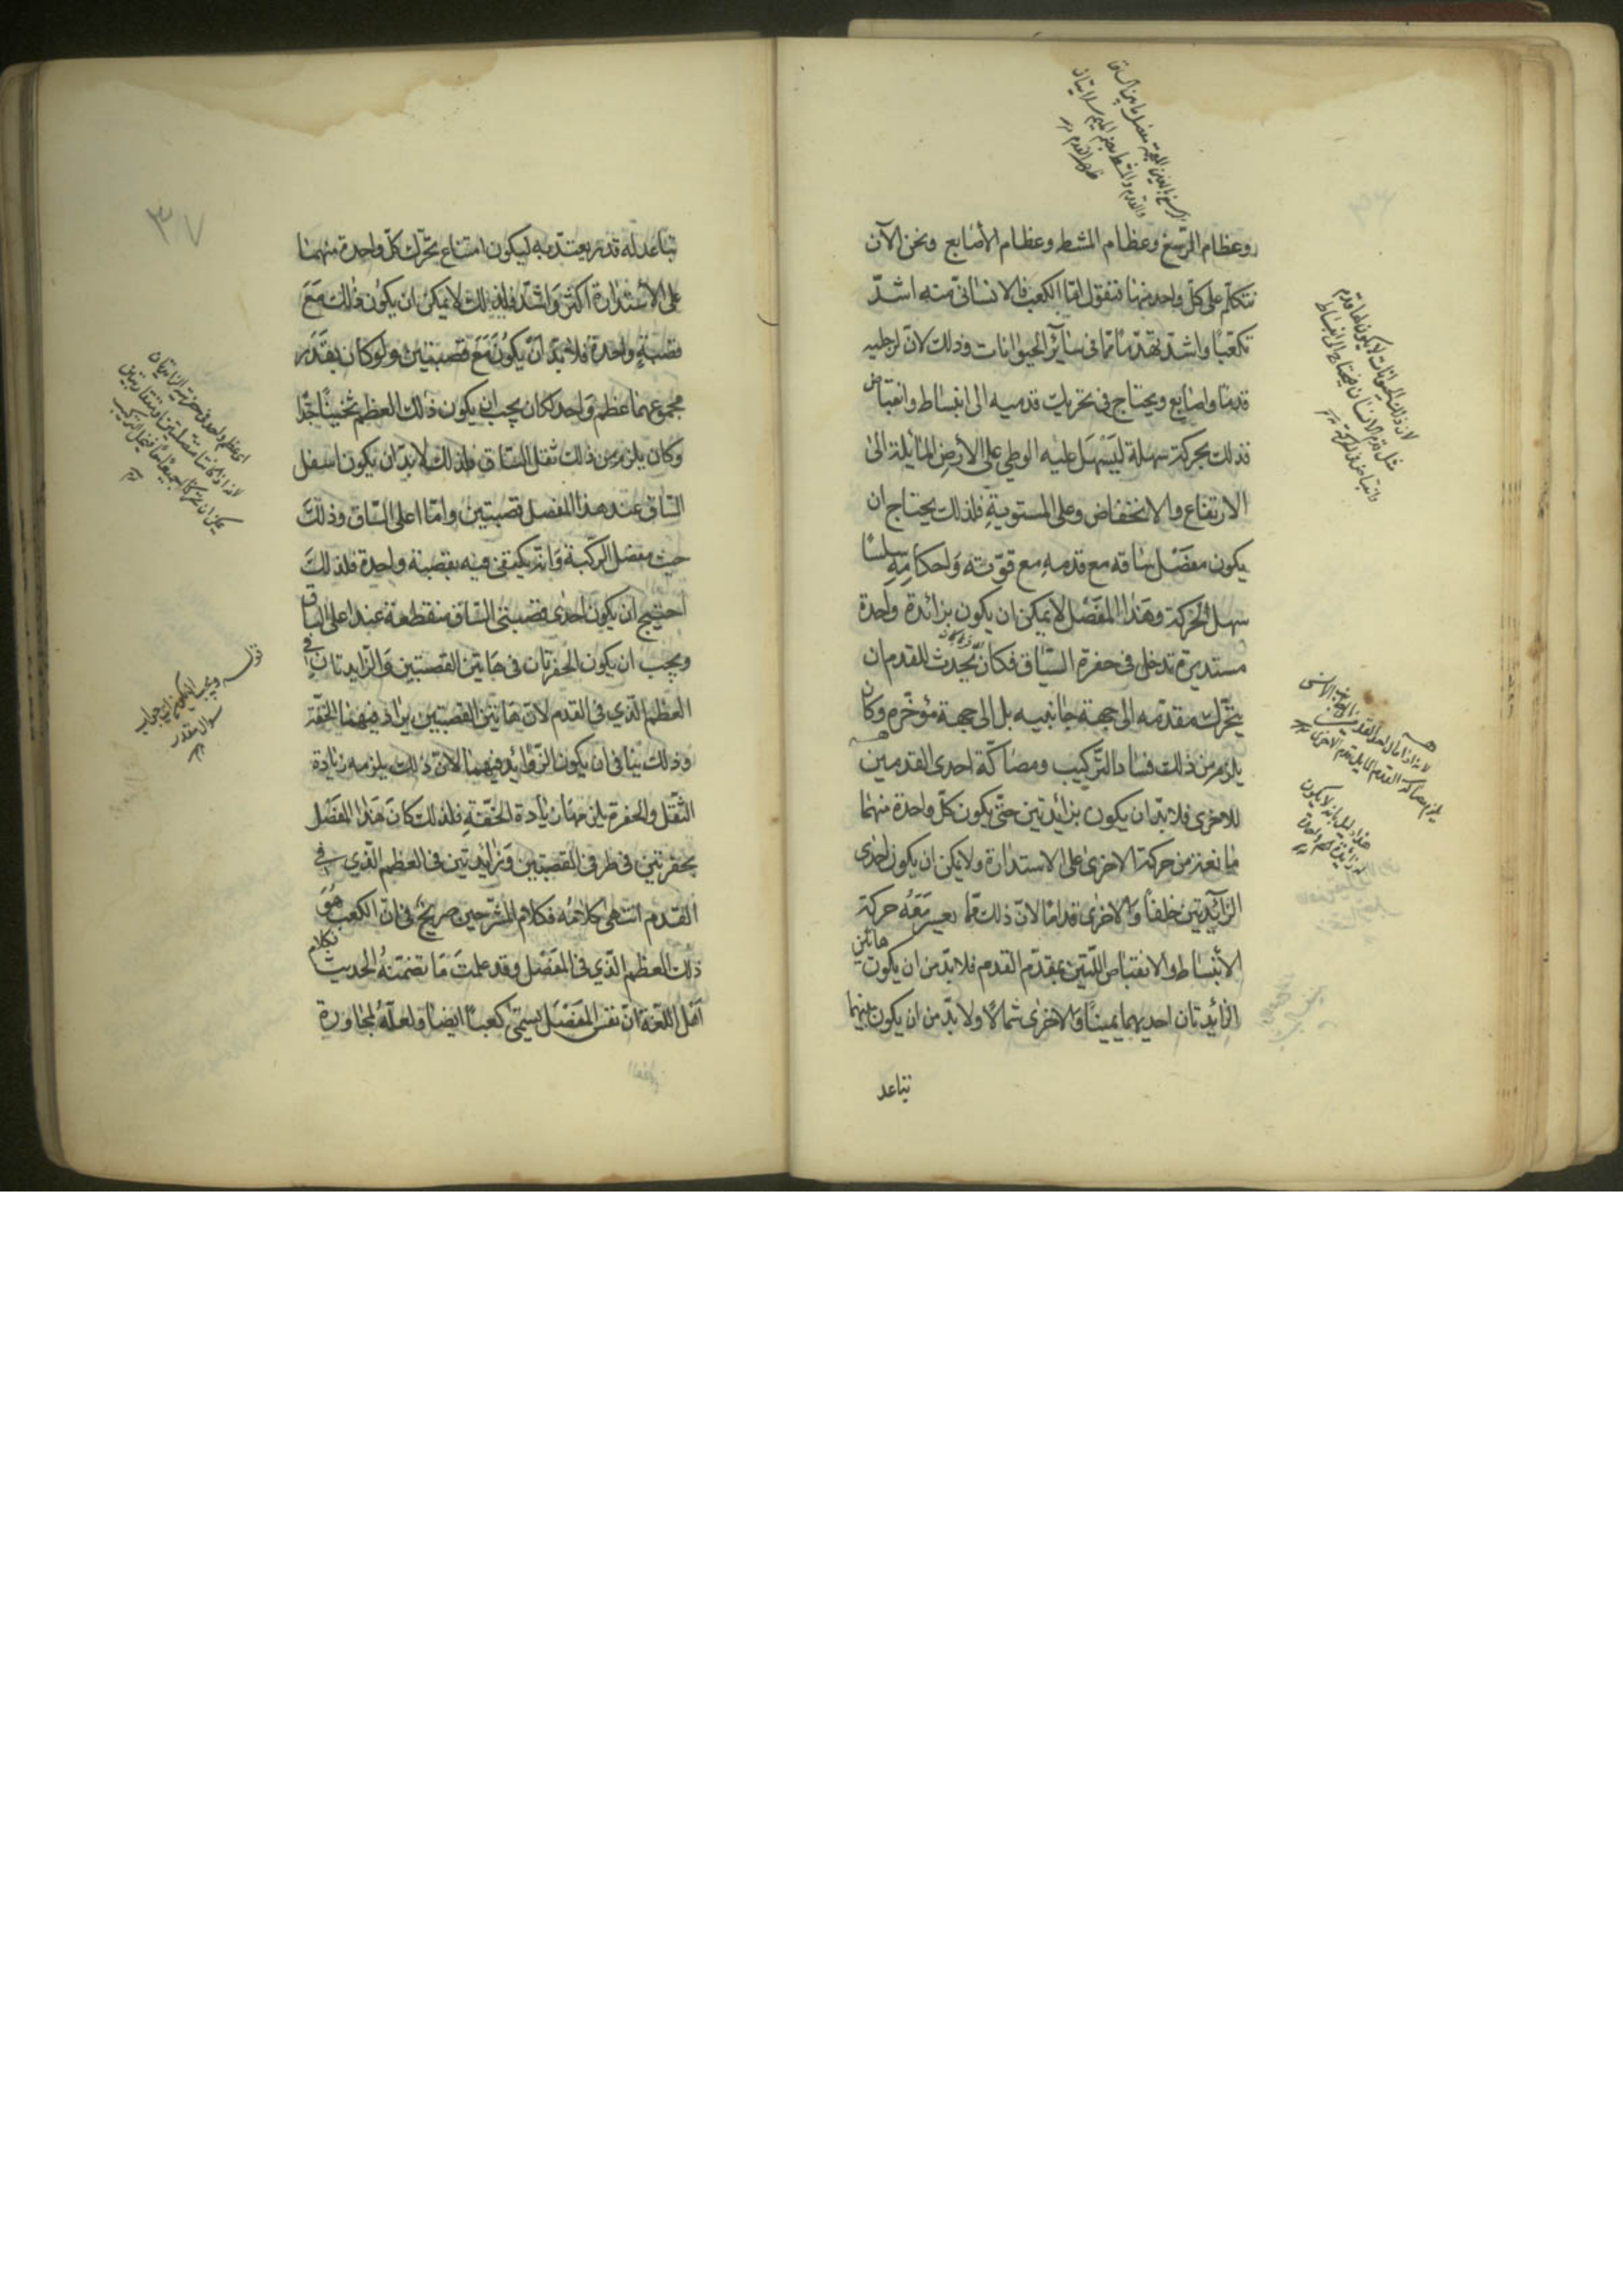 وعظام الرسغ وعظام المشط وعظام الأصابع ونحن الآن
نتكلم على كل واحد منها فنقول امّا الكعب فالانسانى منه اشدّ
تكعّبًا واشدّ تهندمًا ممّا فى سائر الحيوانات وذلك لانّ لرجليه
قدمًا واصابع ويحتاج فى تحريك قدميه الى انبساط وانقباض
فذلك بحركة سهلة ليسهل عليه الوطي على الأرض المائلة الى
الارتفاع والانخفاض وعلى المستوية فلذلك يحتاج ان
يكون مفصل ساقه مع قدمه مع قوّته واحكامه سلسًا
سهل الحركة وهذا المفصل لا يمكن ان يكون بزائدة واحدة
مستديرة تدخل فى حفرة الساق فكان يحدث للقدم ان
يتحرّك مقدّمه الى جهة جانبيه بل الى جهة مؤخّره وكان
يلزم من ذلك فساد التركيب ومصاكّة احدى القدمين
للاخرى فلا بدّ ان يكون بزائدتين حتّى يكون كلّ واحدة منهما
مانعة من حركة الاخرى على الاستدارة ولا يمكن ان يكون احدى
الزائدتين خلفًا والاخرى قدامًا لانّ ذلك ممّا يعسر معه حركة
الانبساط والانقباض اللتين بمقدّم القدم فلا بدّ من ان يكون هاتان
الزائدتان احديهما يمينًا والاخرى شمالًا ولا بدّ من ان يكون بينهما
تباعد
٣٧
تباعد له قدر يعتدّ به ليكون امتناع تحرّك كلّ واحدة منهما
على الاستدارة اكثر واشدّ فلذلك لا يمكن ان يكون ذلك مع
قصبة واحدة فلا بدّ ان يكون مع قصبتين ولو كان بقدر
مجموعهما عظم واحد لكان يجب ان يكون ذلك العظم ثخينًا جدًّا
وكان يلزم من ذلك ثقل الساق فلذلك لا بدّ ان يكون اسفل
الساق عند هذا المفصل قصبتين وامّا اعلى الساق وذلك
حيث مفصل الركبة فانّه يكتفى فيه بقصبة واحدة فلذلك
احتيج ان يكون احدى قصبتى الساق منقطعة عند اعلى الساق
ويجب ان يكون الحفرتان فى هاتين القصبتين والزايدتان فى
العظم الّذي فى القدم لانّ هاتين القصبتين يراد فيهما الخفّة
وذلك ينافى ان يكون الزوائد فيهما لانّ ذلك يلزمه زيادة
الثقل والحفرة يلزمها زيادة الخفّة فلذلك كان هذا المفصل
بحفرتين فى طرفى القصبتين وزائدتين فى العظم الّذي فى
القدم انتهى كلامه فكلام المشرّحين صريح فى انّ الكعب هو
ذلك العظم الّذي فى المفصل وقد علمت ما تضمّنه الحديث وكلام
اهل اللغة انّ نفس المفصل يسمّى كعبًا ايضًا ولعلّه لمجاورة
قوله ويجب ان يكون
جواب
سؤال مقدر